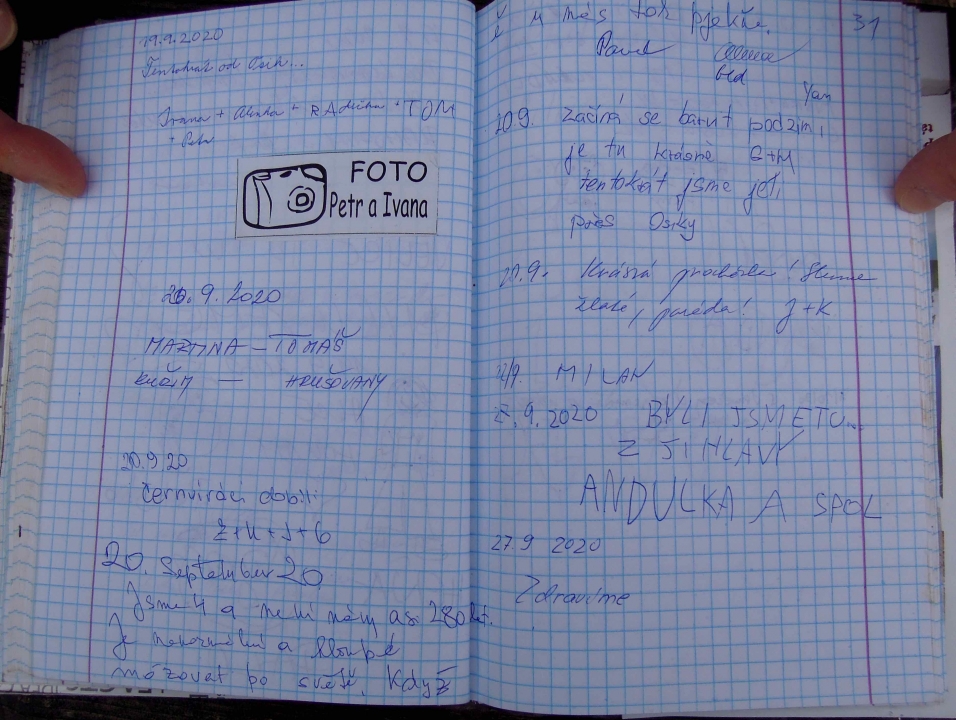 19.9.2020
Tentokrát od Osik...
Ivana + Alenka + RAdečka + TOM
+ Petr
FOTO
Petr a Ivana
20.9.2020
MARTINA – TOMÁŠ
KUŘIM — HRUŠOVANY
20.9.20
Černvíráci dobili
Z+K+J+G
20. September 20
Jsme 4 a není nám asi 280 let.
Je nenormální a hloupé
po světě, Když
je u nás tak pjekňe.
31
Pavel
Old
Yan
20.9. Začíná se barvit podzim,
je tu krásně G+M
tentokrát jsme jeli
přes Osiky
20.9. Krásná procházka!
zlaté, paráda! J+K
MILAN
27.9.2020 BYLI JSME TU...
Z JIHLAVY
ANDULKA A SPOL
27.9 2020
Zdravíme